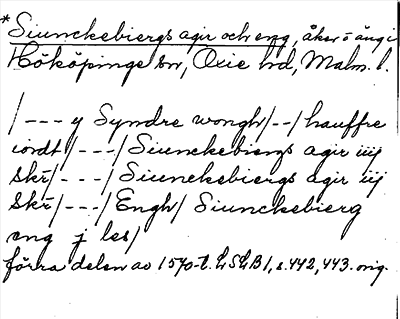 *Siunckebiergs agir och eng, åker o äng i
Hököpinge sn, Oxie hd, Malm. l.
/--- y Syndre wongh/--/hauffre
iordt/---/Siunckebiergs agir iiij
skr̄/---/Siunckebiergs agir iij
skr̄/---/Engh/ Siunckebierg
eng j les/
förra delen av 1570-t. LSLB1, s. 442, 443. orig.